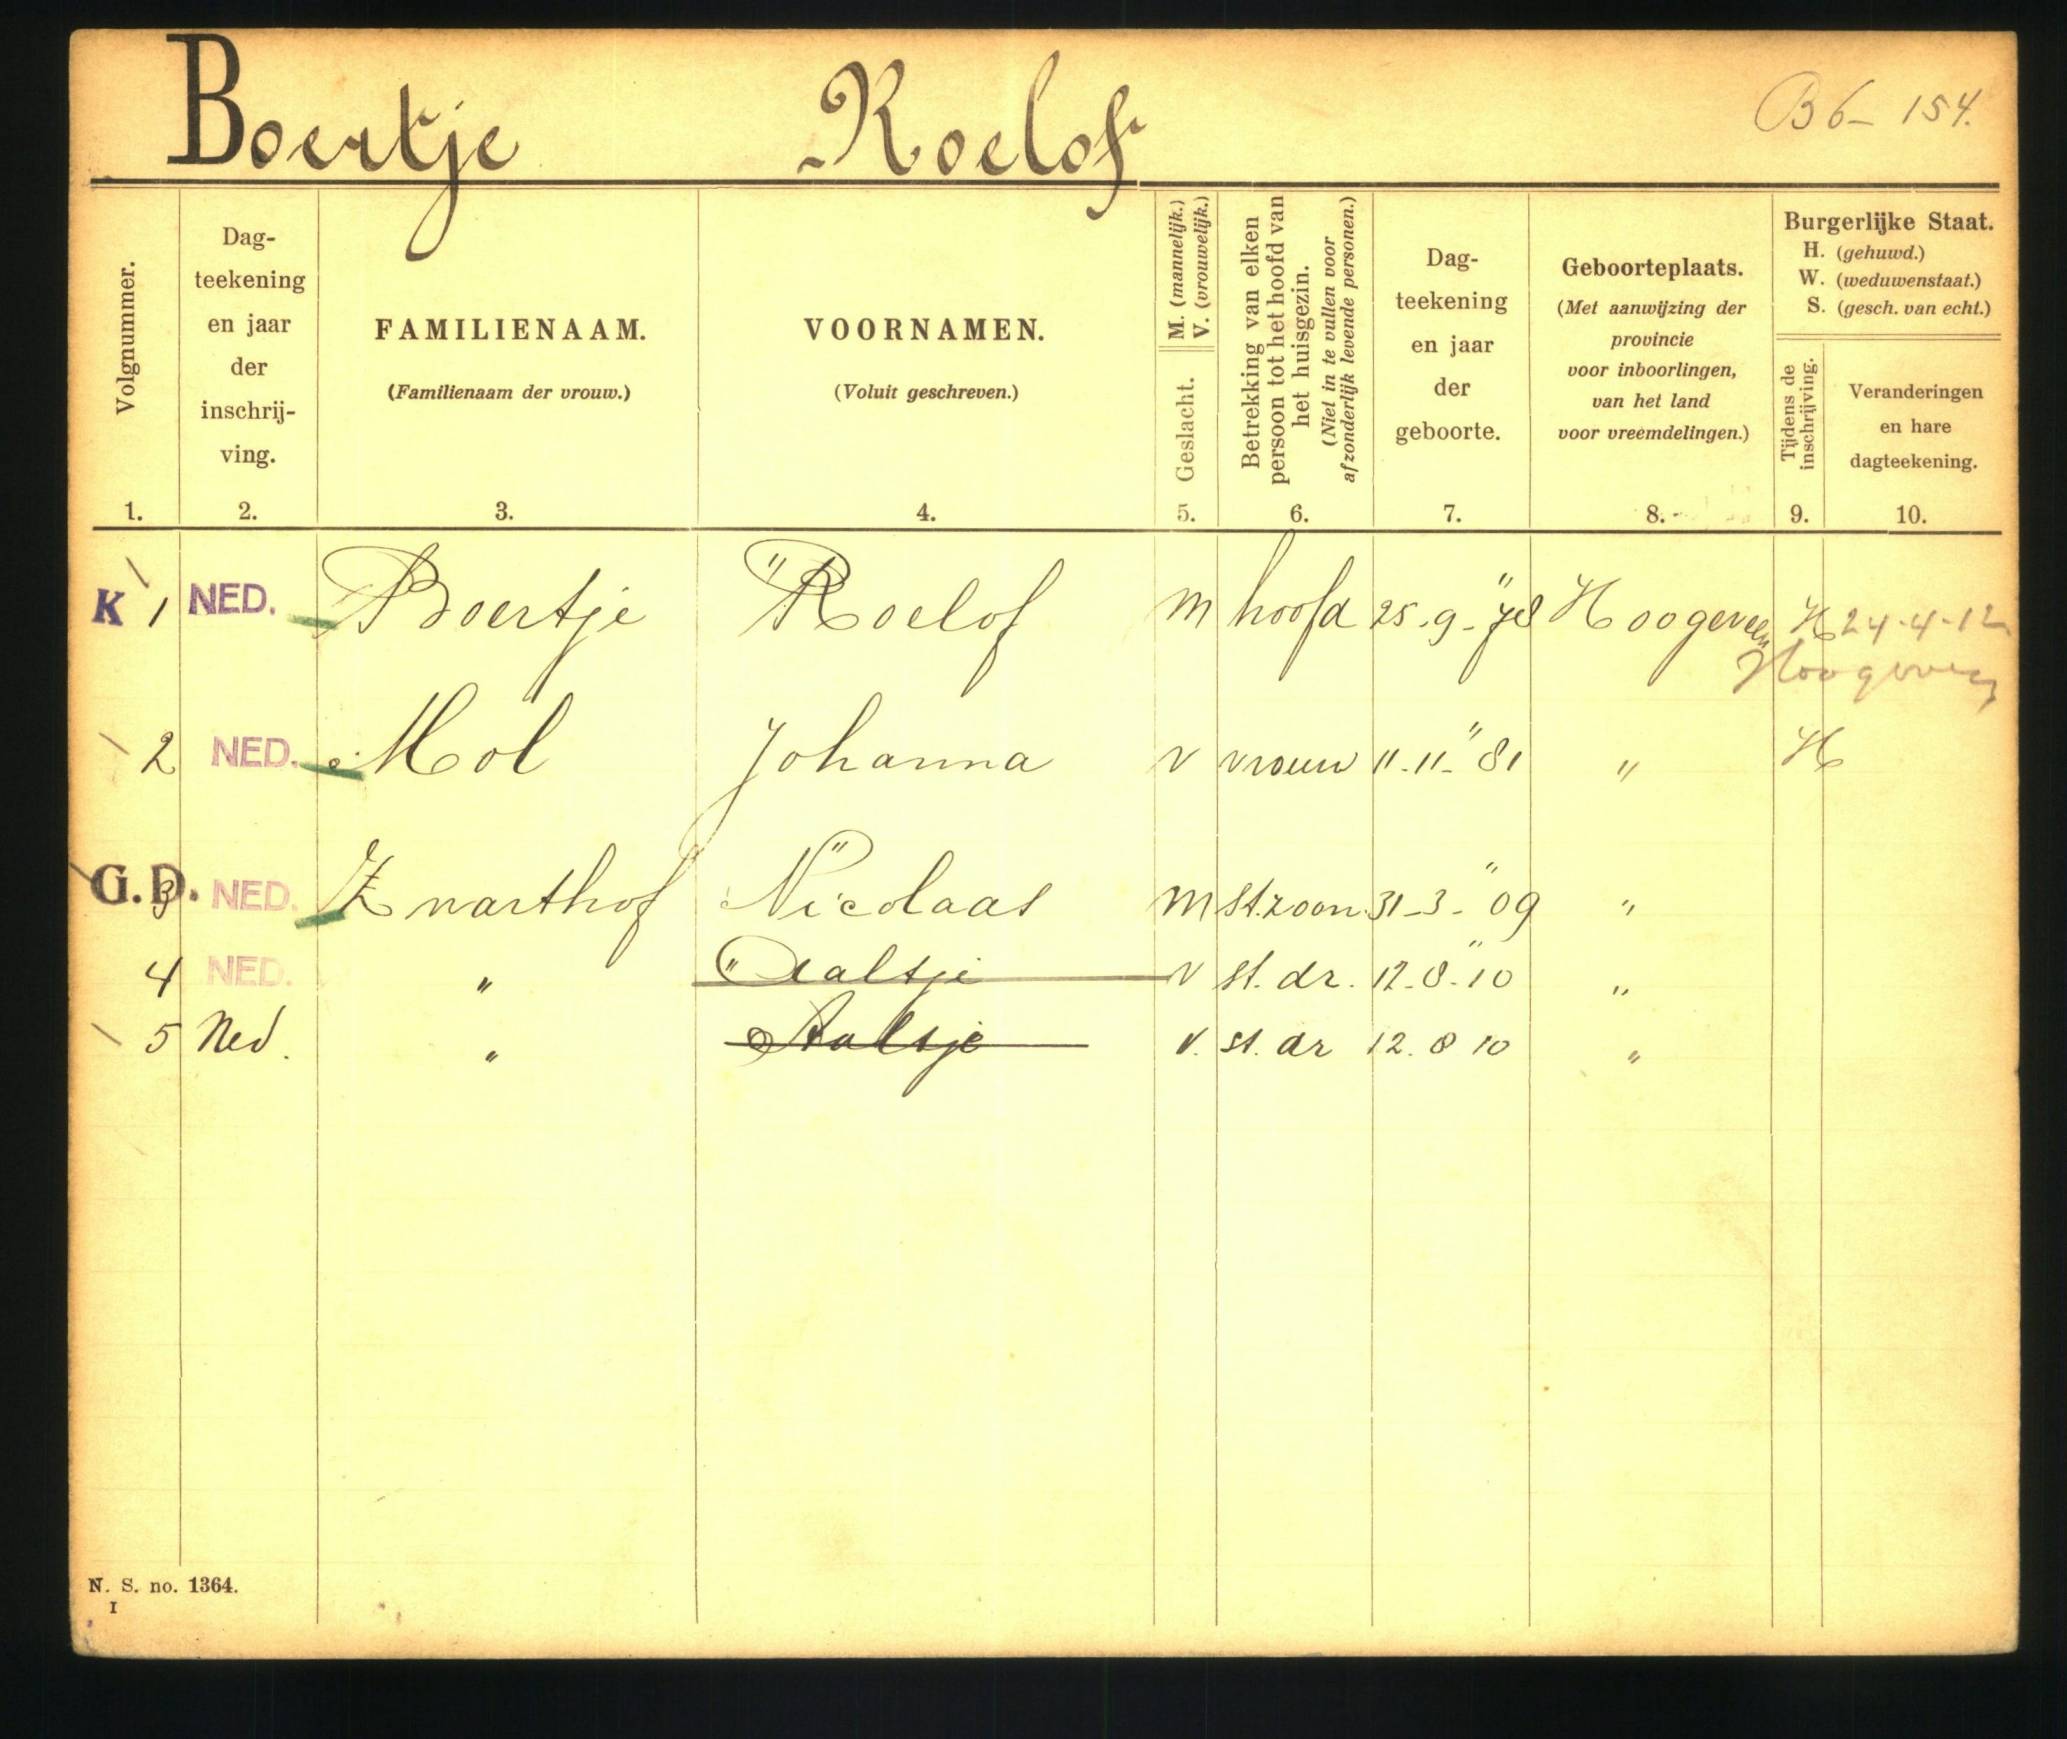 Boertje Roelof B6- 154.
Volgnummer.
1.
Dag-
teekening
en jaar
der
inschrij-
ving.
2.
FAMILIENAAM.
(Familienaam der vrouw.)
3.
VOORNAMEN.
(Voluit geschreven.)
4.
M. (mannelijk.)
V. (vrouwelijk.)
Geslacht.
5.
Betrekking van elken
persoon tot het hoofd van
het huisgezin.
(Niet in te vullen voor
afzonderlijk levende personen.)
6.
Dag-
teekening
en jaar
der
geboorte.
7.
Geboorteplaats.
(Met aanwijzing der
provincie
voor inboorlingen,
van het land
voor vreemdelingen.)
8.
Burgerlijke Staat.
H. (gehuwd.)
W. (weduwenstaat.)
S. (gesch. van echt.)
Tijdens de
inschrijving.
9.
Veranderingen
en hare
dagteekening.
10.
K 1 NED. Boertje Roelof M hoofd 25-9-"78 Hoogeveen H 24-4-12
Hoogeveen
2 NED. Mol Johanna V vrouw 11-11-"81 " H
G.D. 3 NED. Zwarthof Nicolaas M st.zoon 31-3-"09 "
4 NED. " Aaltje V st. dr. 12-8-"10 "
5 Ned. " Aaltje V. st. dr 12.8 10 "
N. S. no. 1364.
I